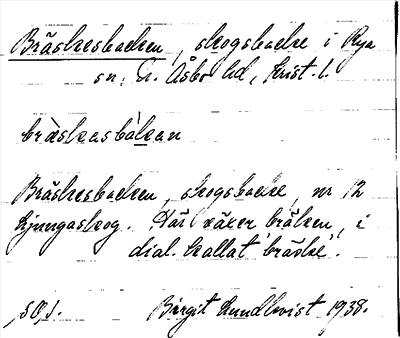 Bräskesbacken, skogsbacke i Rya
sn, N. Åsbo hd, Krist. l.
bräskasbàkan
Bräskesbacken, skogsbacke, nr 12
Ljungaskog. Där växer bräken, i
dial. kallat 'bräske'.
Birgit Lundkvist 1938.